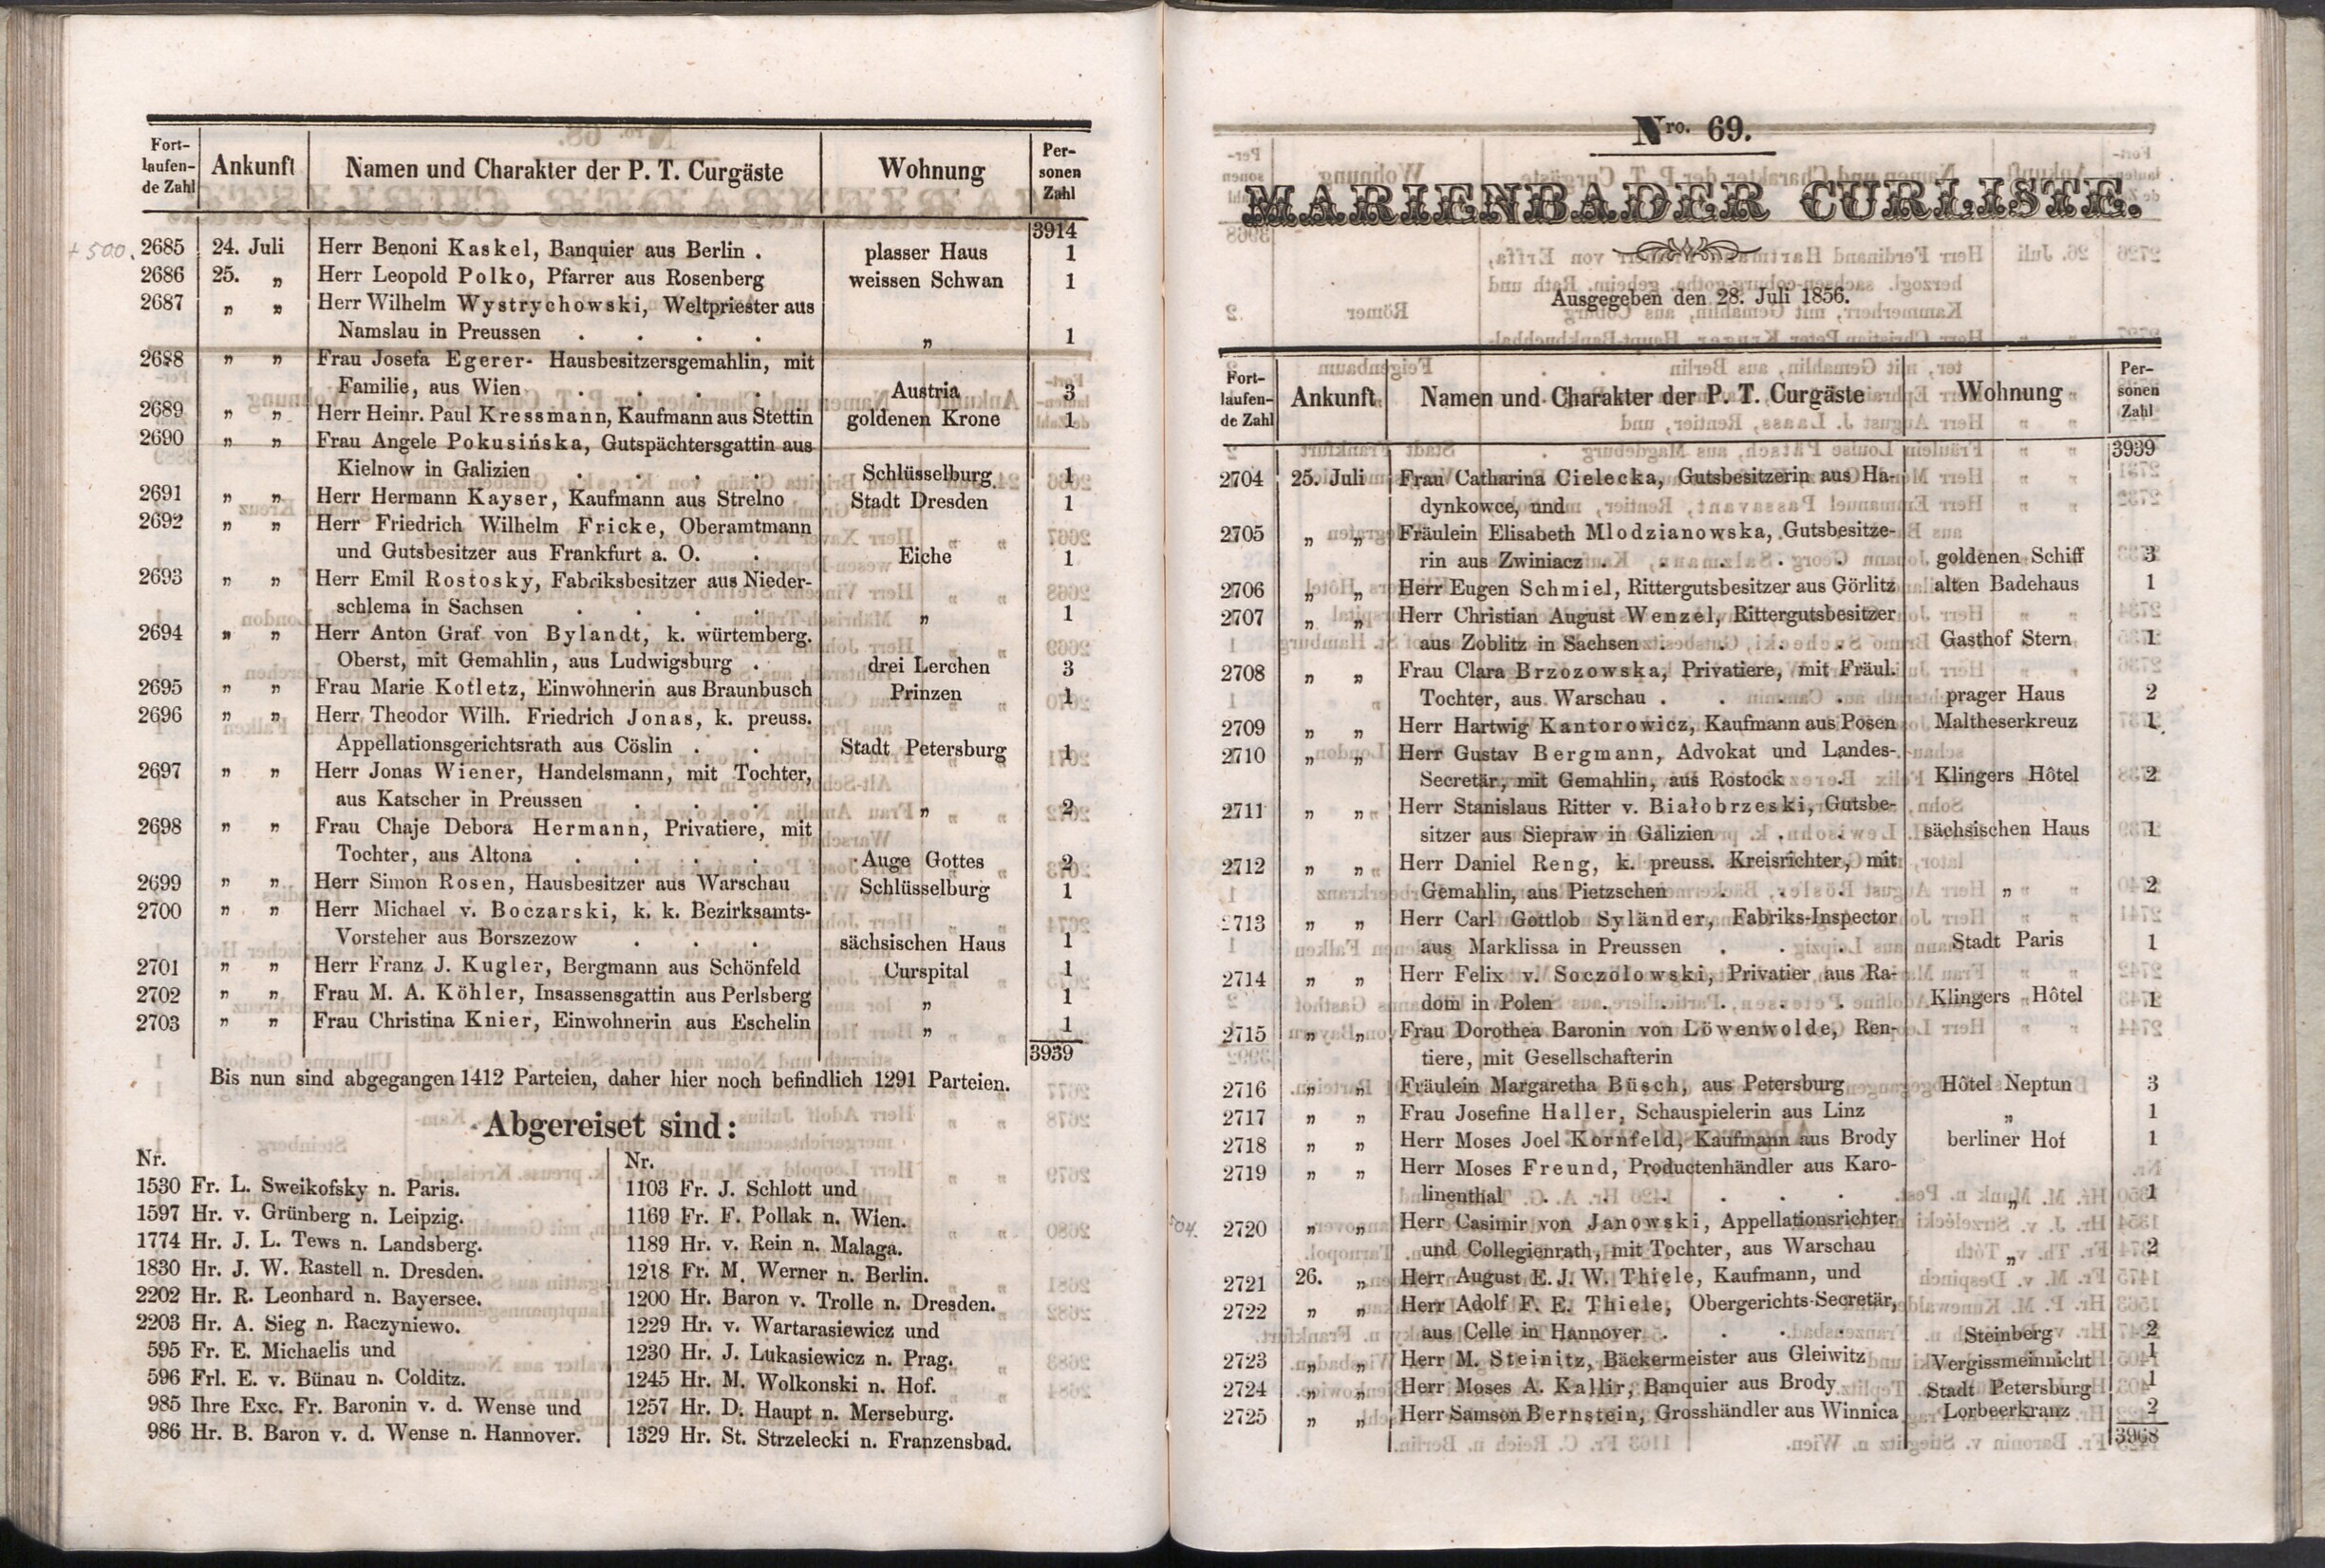 Fort-
laufen-
de Zahl
Ankunft
Namen und Charakter der P. T. Curgäste
Wohnung
Per-
sonen
Zahl
3914
+ 500.
2685 24. Juli Herr Benoni Kaskel, Banquier aus Berlin . plasser Haus 1
2686 25. „ Herr Leopold Polko, Pfarrer aus Rosenberg weissen Schwan 1
2687 „ „ Herr Wilhelm Wystrychowski, Weltpriester aus
Namslau in Preussen . . . . „ 1
2688 „ „ Frau Josefa Egerer- Hausbesitzersgemahlin, mit
Familie, aus Wien . . . . Austria 3
2689 „ „ Herr Heinr. Paul Kressmann, Kaufmann aus Stettin goldenen Krone 1
2690 „ „ Frau Angele Pokusińska, Gutspächtersgattin aus
Kielnow in Galizien . . . . Schlüsselburg 1
2691 „ „ Herr Hermann Kayser, Kaufmann aus Strelno Stadt Dresden 1
2692 „ „ Herr Friedrich Wilhelm Fricke, Oberamtmann
und Gutsbesitzer aus Frankfurt a. O. . Eiche 1
2693 „ „ Herr Emil Rostosky, Fabriksbesitzer aus Nieder-
schlema in Sachsen . . . . „ 1
2694 „ „ Herr Anton Graf von Bylandt, k. würtemberg.
Oberst, mit Gemahlin, aus Ludwigsburg . drei Lerchen 3
2695 „ „ Frau Marie Kotletz, Einwohnerin aus Braunbusch Prinzen 1
2696 „ „ Herr Theodor Wilh. Friedrich Jonas, k. preuss.
Appellationsgerichtsrath aus Cöslin . . Stadt Petersburg 1
2697 „ „ Herr Jonas Wiener, Handelsmann, mit Tochter,
aus Katscher in Preussen . . . „ 2
2698 „ „ Frau Chaje Debora Hermann, Privatiere, mit
Tochter, aus Altona . . . . Auge Gottes 2
2699 „ „ Herr Simon Rosen, Hausbesitzer aus Warschau Schlüsselburg 1
2700 „ „ Herr Michael v. Boczarski, k. k. Bezirksamts-
Vorsteher aus Borszezow . . . sächsischen Haus 1
2701 „ „ Herr Franz J. Kugler, Bergmann aus Schönfeld Curspital 1
2702 „ „ Frau M. A. Köhler, Insassensgattin aus Perlsberg „ 1
2703 „ „ Frau Christina Knier, Einwohnerin aus Eschelin „ 1
3939
Bis nun sind abgegangen 1412 Parteien, daher hier noch befindlich 1291 Parteien.
Abgereiset sind:
Nr.
1530 Fr. L. Sweikofsky n. Paris.
1597 Hr. v. Grünberg n. Leipzig.
1774 Hr. J. L. Tews n. Landsberg.
1830 Hr. J. W. Rastell n. Dresden.
2202 Hr. R. Leonhard n. Bayersee.
2203 Hr. A. Sieg n. Raczyniewo.
595 Fr. E. Michaelis und
596 Frl. E. v. Bünau n. Colditz.
985 Ihre Exc. Fr. Baronin v. d. Wense und
986 Hr. B. Baron v. d. Wense n. Hannover.
Nr.
1103 Fr. J. Schlott und
1169 Fr. F. Pollak n. Wien.
1189 Hr. v. Rein n. Malaga.
1218 Fr. M. Werner n. Berlin.
1200 Hr. Baron v. Trolle n. Dresden.
1229 Hr. v. Wartarasiewicz und
1230 Hr. J. Lukasiewicz n. Prag.
1245 Hr. M. Wolkonski n. Hof.
1257 Hr. D. Haupt n. Merseburg.
1329 Hr. St. Strzelecki n. Franzensbad.
Nro. 69.
MARIENBADER CURLISTE.
Ausgegeben den 28. Juli 1856.
Fort-
laufen-
de Zahl
Ankunft
Namen und Charakter der P. T. Curgäste
Wohnung
Per-
sonen
Zahl
3939
2704 25. Juli Frau Catharina Cielecka, Gutsbesitzerin aus Ha-
dynkowce, und
2705 „ „ Fräulein Elisabeth Mlodzianowska, Gutsbesitze-
rin aus Zwiniacz . . . . . goldenen Schiff 3
2706 „ „ Herr Eugen Schmiel, Rittergutsbesitzer aus Görlitz alten Badehaus 1
2707 „ „ Herr Christian August Wenzel, Rittergutsbesitzer
aus Zoblitz in Sachsen . . . . Gasthof Stern 1
2708 „ „ Frau Clara Brzozowska, Privatiere, mit Fräul.
Tochter, aus Warschau . . . . prager Haus 2
2709 „ „ Herr Hartwig Kantorowicz, Kaufmann aus Posen Maltheserkreuz 1
2710 „ „ Herr Gustav Bergmann, Advokat und Landes-
Secretär, mit Gemahlin, aus Rostock . Klingers Hôtel 2
2711 „ „ Herr Stanislaus Ritter v. Białobrzeski, Gutsbe-
sitzer aus Siepraw in Galizien . . sächsischen Haus 1
2712 „ „ Herr Daniel Reng, k. preuss. Kreisrichter, mit
Gemahlin, aus Pietzschen . . . „ 2
2713 „ „ Herr Carl Gottlob Syländer, Fabriks-Inspector
aus Marklissa in Preussen . . . Stadt Paris 1
2714 „ „ Herr Felix v. Soczolowski, Privatier aus Ra-
dom in Polen . . . . . Klingers Hôtel 1
2715 „ „ Frau Dorothea Baronin von Löwenwolde, Ren-
tiere, mit Gesellschafterin
2716 „ „ Fräulein Margaretha Büsch, aus Petersburg Hôtel Neptun 3
2717 „ „ Frau Josefine Haller, Schauspielerin aus Linz „ 1
2718 „ „ Herr Moses Joel Kornfeld, Kaufmann aus Brody berliner Hof 1
2719 „ „ Herr Moses Freund, Productenhändler aus Karo-
linenthal . . . . . . „ 1
504.
2720 „ „ Herr Casimir von Janowski, Appellationsrichter
und Collegienrath, mit Tochter, aus Warschau „ 2
2721 26. „ Herr August E. J. W. Thiele, Kaufmann, und
2722 „ „ Herr Adolf F. E. Thiele, Obergerichts-Secretär,
aus Celle in Hannover . . . . Steinberg 2
2723 „ „ Herr M. Steinitz, Bäckermeister aus Gleiwitz Vergissmeinnicht 1
2724 „ „ Herr Moses A. Kallir, Banquier aus Brody Stadt Petersburg 1
2725 „ „ Herr Samson Bernstein, Grosshändler aus Winnica Lorbeerkranz 2
3968